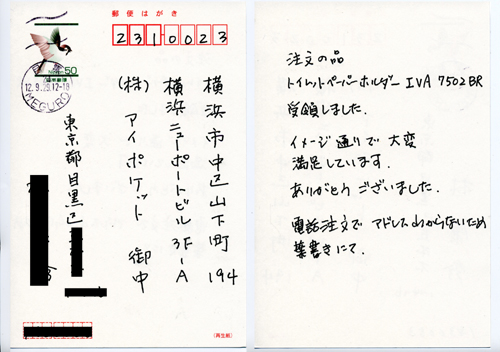 郵便はがき
2310023
50
12.9.29.12-18
MEGURO
横浜市中区山下町194
横浜ニューポートビル3F-A
(株)アイポケット 御中
東京都目黒区
(再生紙)
注文の品
トイレットペーパーホルダー IVA 7502BR
受領しました.
イメージ通りで 大変
満足しています.
ありがとう ございました.
電話注文で アドレスわからないため
葉書きにて.